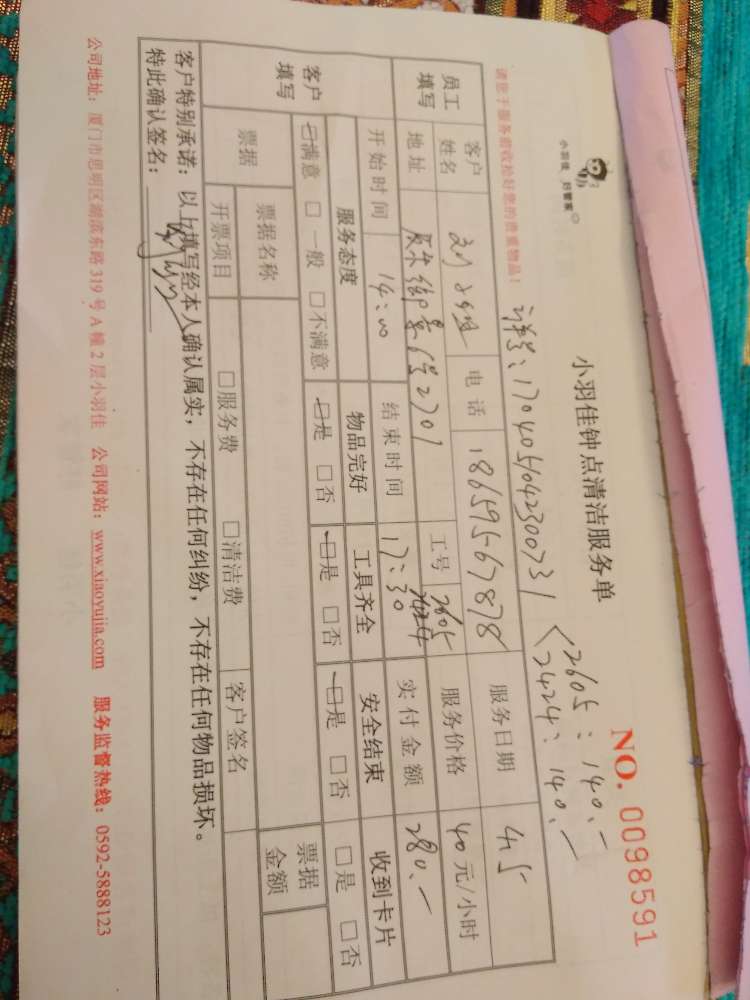 小羽佳 好管家
小羽佳钟点清洁服务单
NO. 0098591
请您于服务前收拾好您的贵重物品！
订单号：1704051042300731
2605：140.-
2424：140.-
员工填写
客户姓名 电话 18659567878 服务日期 4.5
地址 御景 2701 工号 2605 2424 服务价格 40元/小时
开始时间 14:00 结束时间 17:30 实付金额 280.-
客户填写
服务态度 物品完好 工具齐全 安全结束 收到卡片
☑满意 □一般 □不满意 ☑是 □否 ☑是 □否 ☑是 □否 □是 □否
票据 票据名称 票据金额
开票项目 □服务费 □清洁费 客户签名
客户特别承诺：以上填写经本人确认属实，不存在任何纠纷，不存在任何物品损坏。
特此确认签名：
公司地址：厦门市思明区湖滨东路319号A幢2层小羽佳 公司网站：www.xiaoyujia.com 服务监督热线：0592-5888123